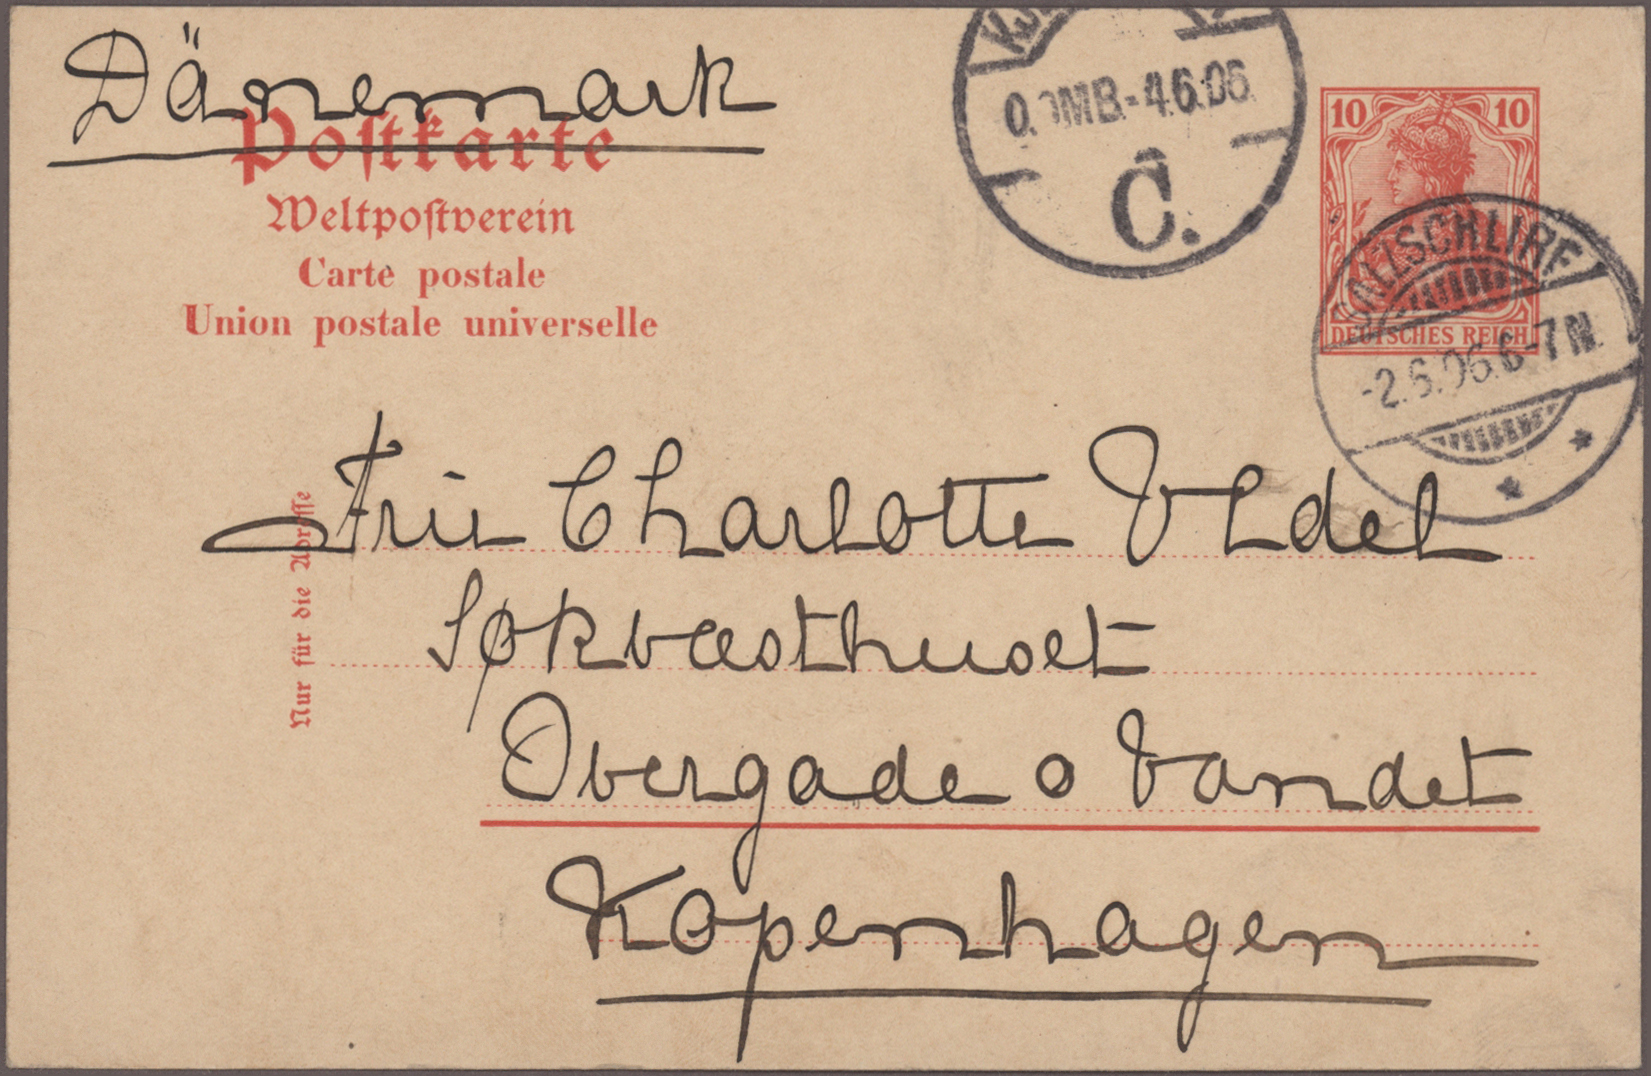 Dänemark
Postkarte
Weltpostverein
Carte postale
Union postale universelle
4.6.06
C.
10 10
DEUTSCHES REICH
SALZSCHLIRF
-2.6.06.6-7N.
Nur für die Adresse
Frü Charlotte Vldel
Søkvæsthuset
Overgade o Vandet
Kopenhagen